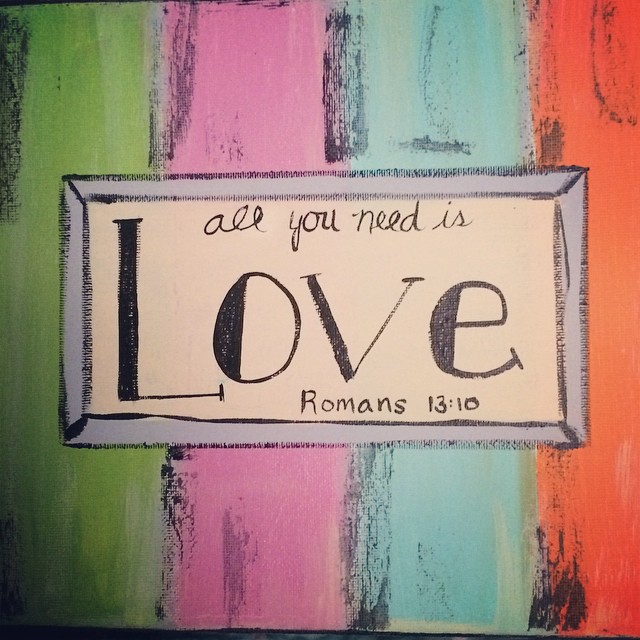 all you need is
Love
Romans 13:10